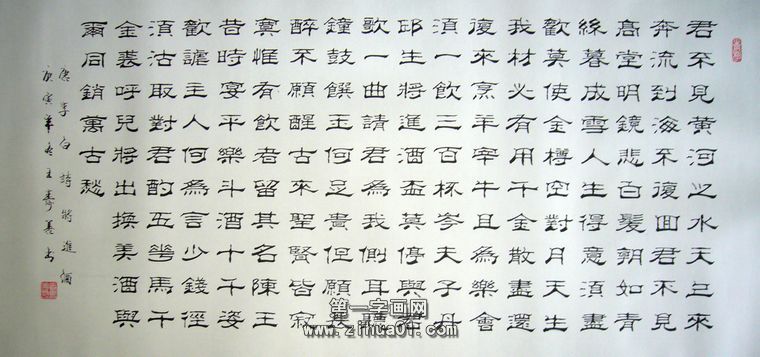 君不見黃河之水天上來
奔流到海不復回君不見
高堂明鏡悲白髮朝如青
絲暮成雪人生得意須盡
歡莫使金樽空對月天生
我材必有用千金散盡還
復來烹羊宰牛且為樂會
須一飲三百杯岑夫子丹
邱生將進酒盃莫停與君
歌一曲請君為我側耳聽
鐘鼓饌玉何足貴但願長
醉不願醒古來聖賢皆寂
寞惟有飲者留其名陳王
昔時宴平樂斗酒十千姿
歡謔主人何為言少錢徑
須沽取對君酌五花馬千
金裘呼兒將出換美酒與
爾同銷萬古愁
唐李白詩將進酒
庚寅年冬王壽義書
第一字画网
www.zihua01.com